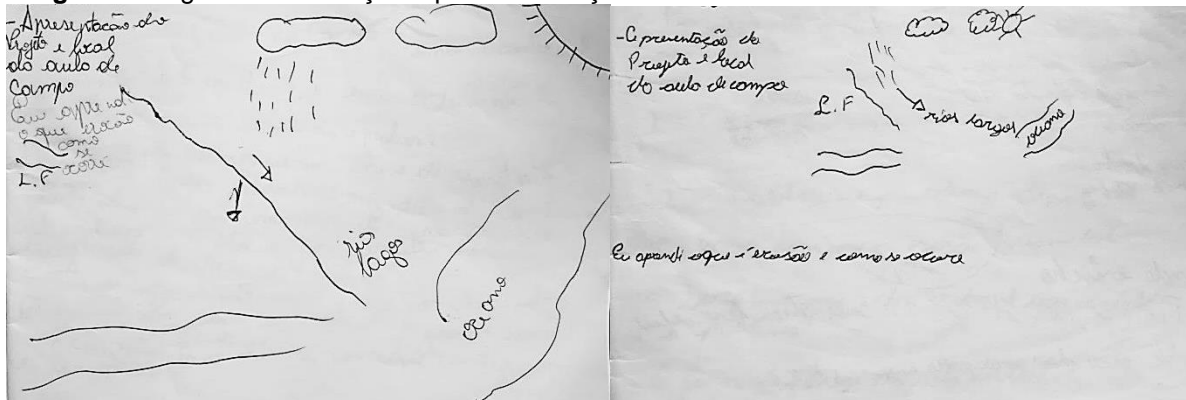 -Apresentação do
Projeto e local
do aula de
Campo
Eu aprendi
o que erosão
como
se
L.F
rios
lagos
Oceano
-Apresentação do
Projeto e local
do aula de campo
L.F
rios largos
Oceano
Eu aprendi oque é erosão e como se ocore